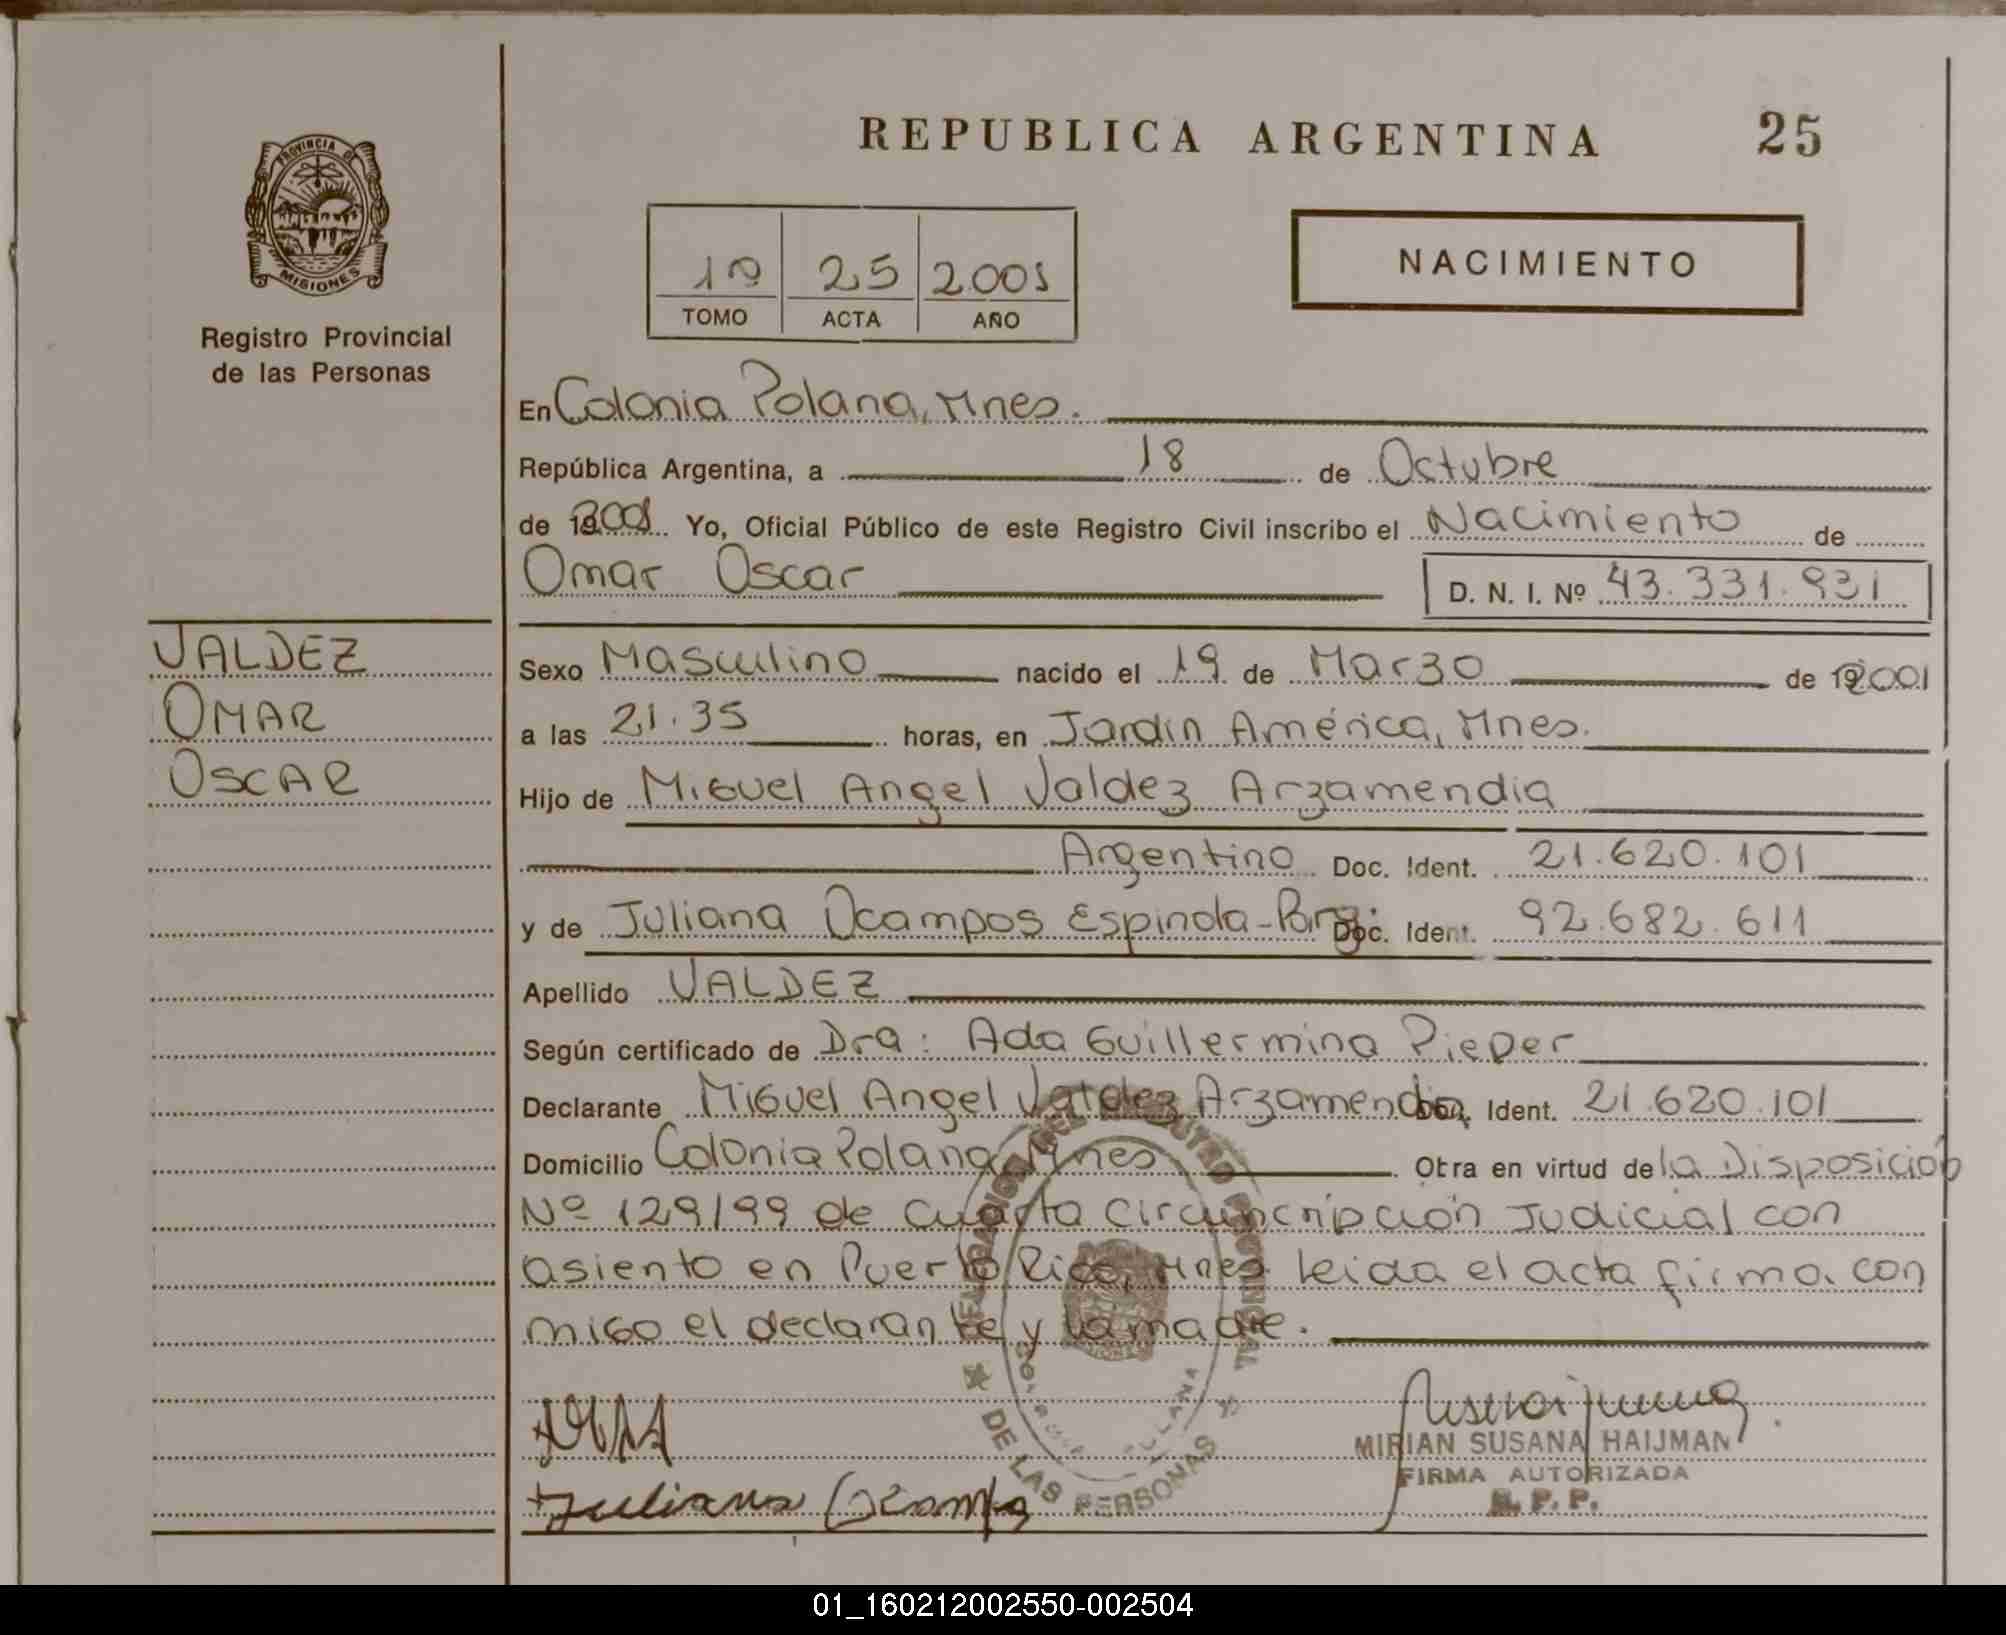 REPUBLICA ARGENTINA 25
PROVINCIA DE
MISIONES
Registro Provincial
de las Personas
1º 25 2.001
TOMO ACTA AÑO
NACIMIENTO
En Colonia Polana, Mnes.
República Argentina, a 18 de Octubre
de 2001 Yo, Oficial Público de este Registro Civil inscribo el Nacimiento de
Omar Oscar D. N. I. Nº 43.331.931
VALDEZ
OMAR
OSCAR
Sexo Masculino nacido el 19 de Marzo de 2001
a las 21.35 horas, en Jardín América, Mnes.
Hijo de Miguel Angel Valdez Arzamendia
Argentino Doc. Ident. 21.620.101
y de Juliana Ocampos Espinola - Parg. Doc. Ident. 92.682.611
Apellido VALDEZ
Según certificado de Dra: Ada Guillermina Pieper
Declarante Miguel Angel Valdez Arzamendia Doc. Ident. 21.620.101
Domicilio Colonia Polana, Mnes Otra en virtud de la Disposición
Nº 129/99 de Cuarta Circuncripción Judicial con
asiento en Puerto Rico, Mnes. leida el acta firma con
migo el declarante y la madre.
DE LAS PERSONAS
MIRIAN SUSANA HAIJMAN
FIRMA AUTORIZADA
R. P. P.
Juliana Ocampo
01_160212002550-002504